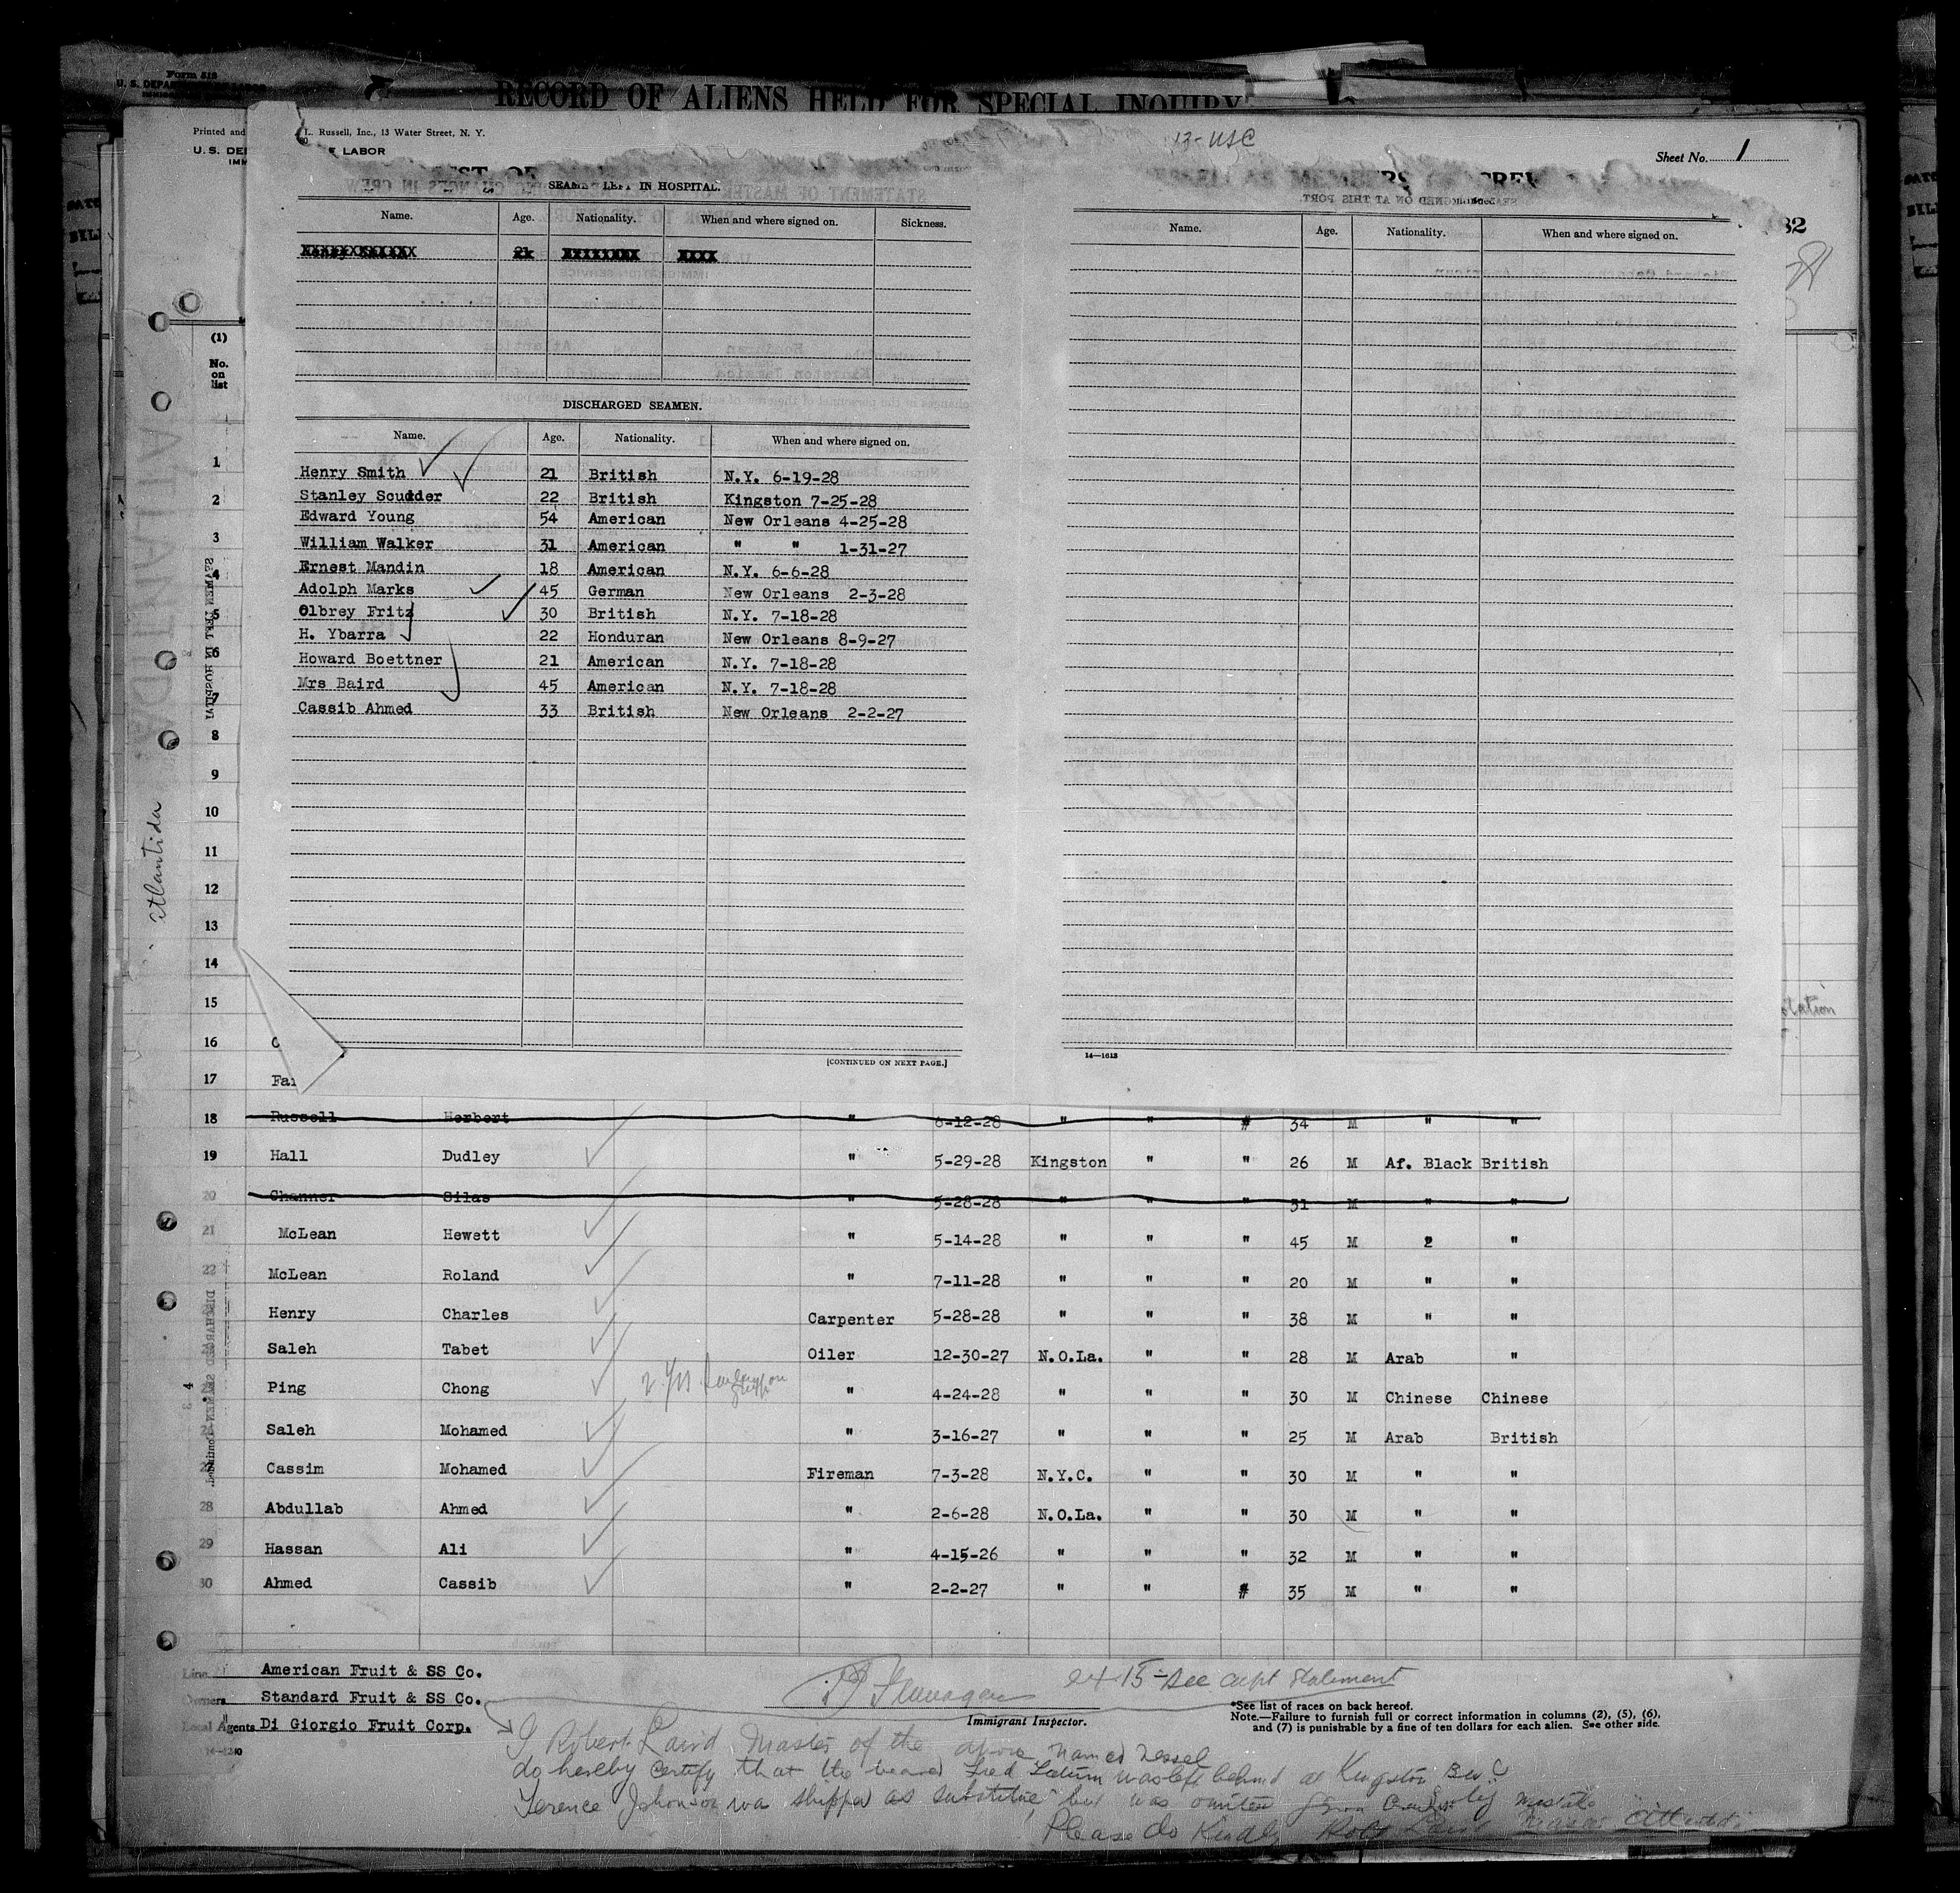 Form 518
RECORD OF ALIENS HELD FOR SPECIAL INQUIRY
Printed and
L. Russell, Inc., 13 Water Street, N. Y.
LABOR
13-USC
Sheet No. 1
SEAMEN LEFT IN HOSPITAL.
Name. Age. Nationality. When and where signed on. Sickness.
Name. Age. Nationality. When and where signed on.
DISCHARGED SEAMEN.
Name. Age. Nationality. When and where signed on.
Henry Smith 21 British N.Y. 6-19-28
Stanley Scudder 22 British Kingston 7-25-28
Edward Young 54 American New Orleans 4-25-28
William Walker 31 American " " 1-31-27
Ernest Mandin 18 American N.Y. 6-6-28
Adolph Marks 45 German New Orleans 2-3-28
Olbrey Fritz 30 British N.Y. 7-18-28
H. Ybarra 22 Honduran New Orleans 8-9-27
Howard Boettner 21 American N.Y. 7-18-28
Mrs Baird 45 American N.Y. 7-18-28
Cassib Ahmed 33 British New Orleans 2-2-27
[CONTINUED ON NEXT PAGE.]
14—1613
(1)
No. on list
1
2
3
4
5
6
7
8
9
10
11
12
13
14
15
16
17
Atlantida
18 Russell Herbert " 6-12-28 " " # 34 M " "
19 Hall Dudley " 5-29-28 Kingston " " 26 M Af. Black British
20 Channer Silas " 5-28-28 " " " 31 M " "
21 McLean Hewett " 5-14-28 " " " 45 M 2 "
22 McLean Roland " 7-11-28 " " " 20 M " "
Henry Charles Carpenter 5-28-28 " " " 38 M " "
Saleh Tabet Oiler 12-30-27 N.O.La. " " 28 M Arab "
Ping Chong " 4-24-28 " " " 30 M Chinese Chinese
Saleh Mohamed " 3-16-27 " " " 25 M Arab British
Cassim Mohamed Fireman 7-3-28 N.Y.C. " " 30 M " "
28 Abdullab Ahmed " 2-6-28 N.O.La. " " 30 M " "
29 Hassan Ali " 4-15-26 " " " 32 M " "
30 Ahmed Cassib " 2-2-27 " " # 35 M " "
Line American Fruit & SS Co.
Owners Standard Fruit & SS Co.
Local Agents Di Giorgio Fruit Corp.
Immigrant Inspector.
*See list of races on back hereof.
Note.—Failure to furnish full or correct information in columns (2), (5), (6),
and (7) is punishable by a fine of ten dollars for each alien. See other side.
I Robert Laird Master of the above named vessel
do hereby certify that the Fred was left behind at Kingston
Terence Johnson was shipped as substitute but was
Please do Kindly